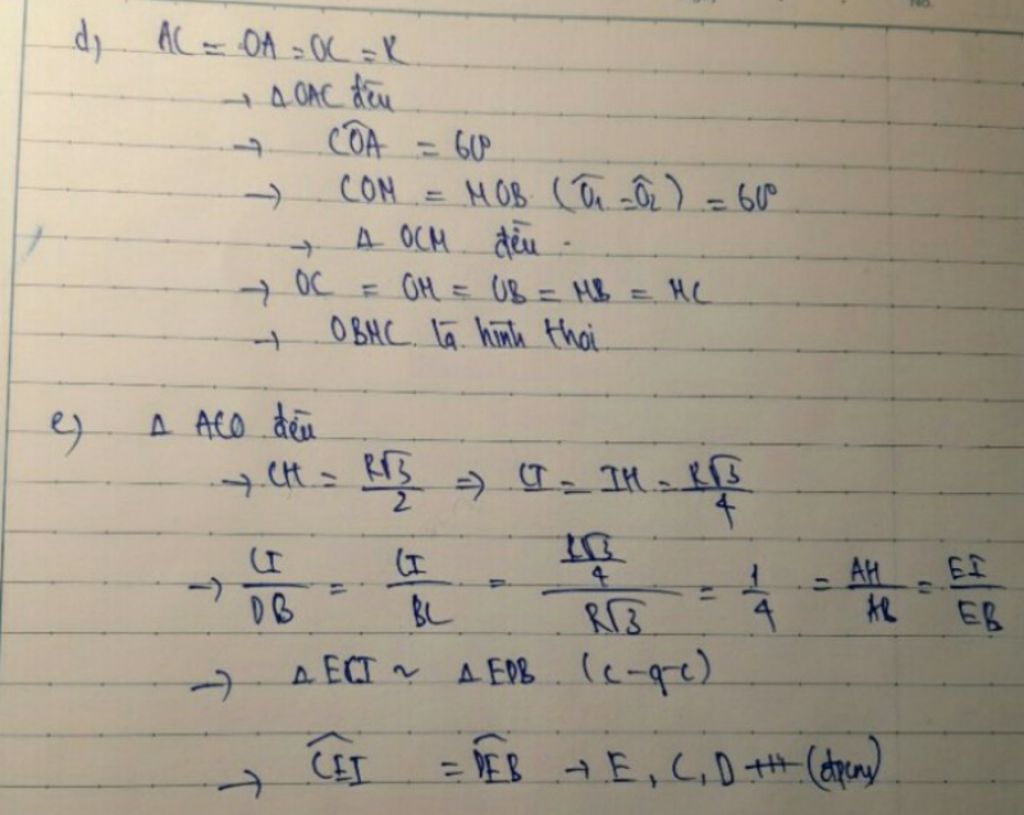 d) AC = OA = OC = R
→ Δ OAC đều
→ CÔA = 60°
→ COM = MOB (Ô1 = Ô2) = 60°
→ Δ OCM đều.
→ OC = OM = OB = MB = MC
→ OBMC là hình thoi
e) Δ ACO đều
→ CH = R√3/2 ⇒ CI = IH = R√3/4
→ CI/DB = CI/BC = (R√3/4)/(R√3) = 1/4 = AH/AB = EI/EB
→ Δ ECI ~ Δ EDB (c-g-c)
→ CÊI = DÊB → E, C, D (đpcm)
No.